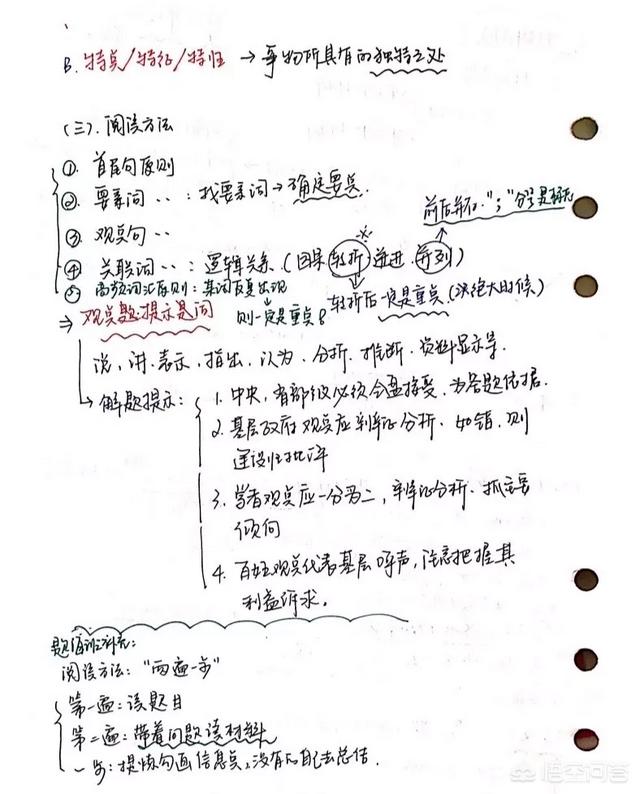 B. 特点/特征/特性 → 事物所具有的独特之处
(三). 阅读方法
①. 首尾句原则
②. 要素词 ‥ : 找要素词→确定要点.
前后并列. "；"分号是标志
③ 观点句 ‥
④ 关联词 ‥ : 逻辑关系.(因果 转折 递进 并列)
⑤ 高频词汇原则: 某词反复出现
则一定是重点!
转折后一定是重点(决绝大时候)
⇒ 观点题:提示是词
说, 讲. 表示, 指出, 认为. 分析. 推断. 资料显示等.
→ 解题提示:
1. 中央, 省部级必须全盘接受, 为答题依据.
2. 基层政府观点应辩证分析. 如错, 则
逐设归批评
3. 学者观点应一分为二, 辩证分析. 抓主要
倾向
4. 百姓观点代表基层呼声, 注意把握其
利益诉求.
阅读方法: "两遍一步"
第一遍: 读题目
第二遍: 带着问题读材料
一步: 提炼勾画信息点, 没有则自己去总结.
悟空问答